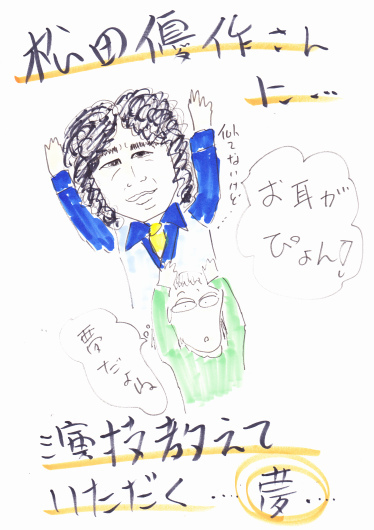 松田優作さん
に...
似てないけど...
お耳が
ぴょん!
夢
だよね
演技教えて
いただく....夢....